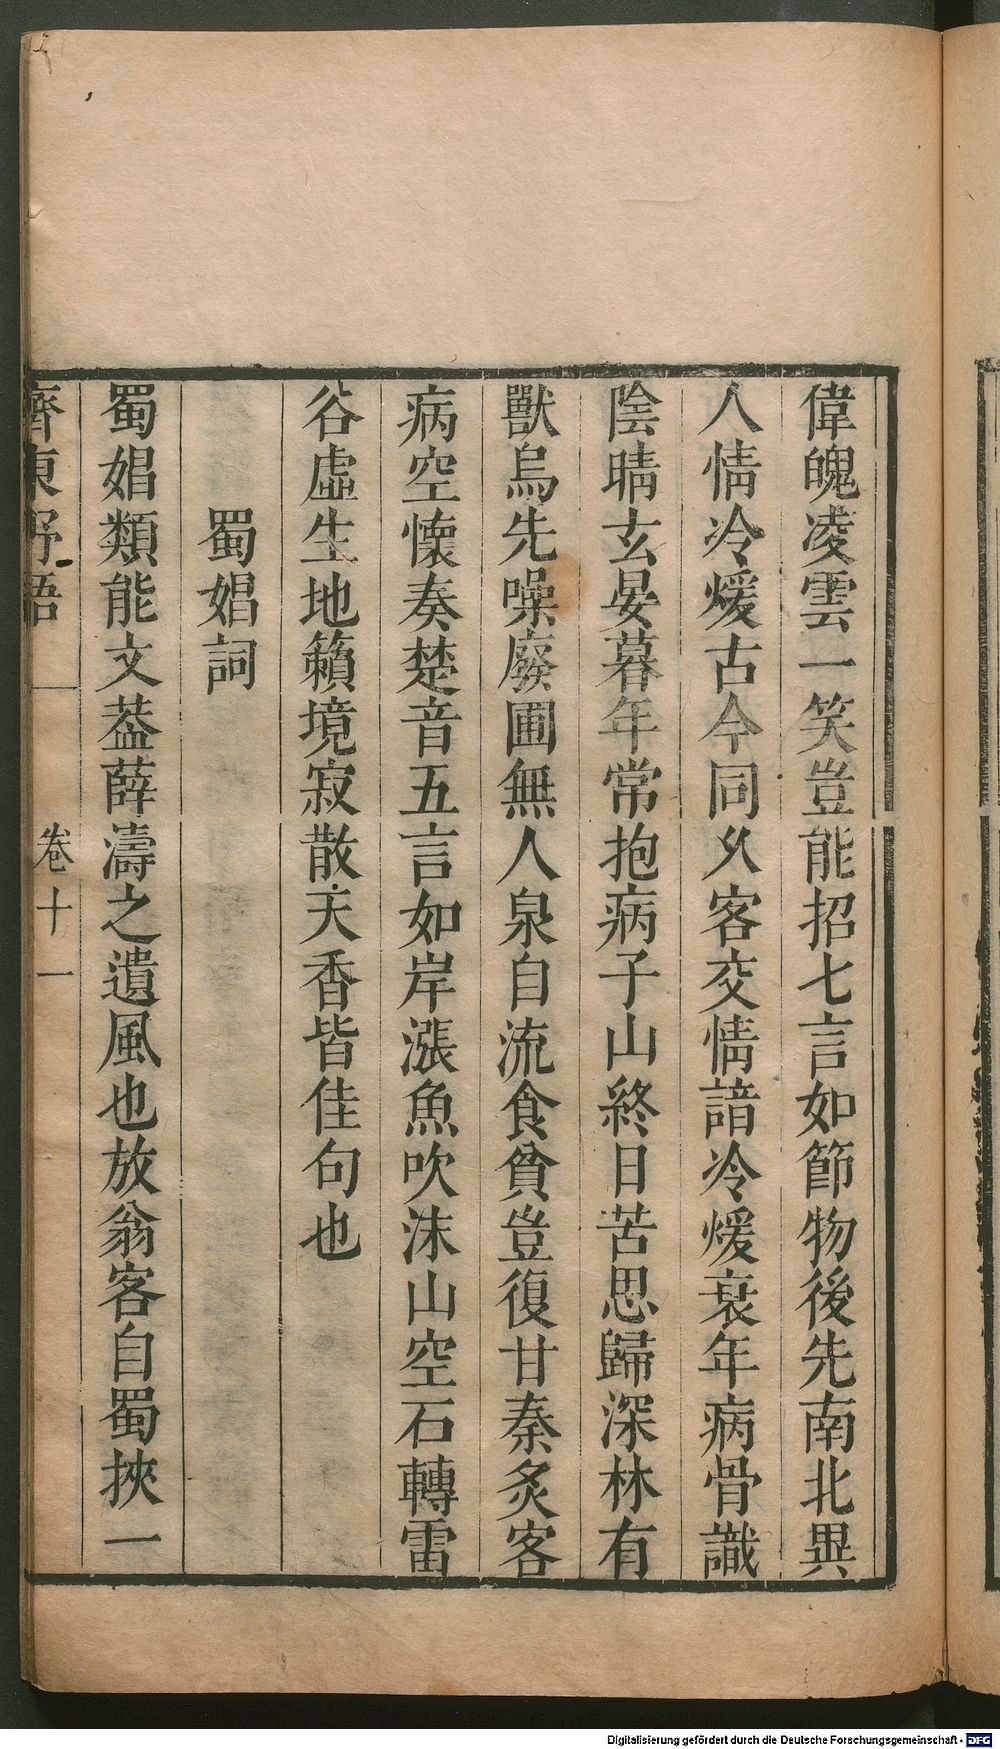 偉魄凌雲一笑豈能招七言如節物後先南北異
人情冷煖古今同乆客交情諳冷煖衰年病骨識
陰晴玄晏暮年常抱病子山終日苦思歸深林有
獸鳥先噪廢圃無人泉自流食貧豈復甘秦炙客
病空懷奏楚音五言如岸漲魚吹沫山空石轉雷
谷虛生地籟境寂散天香皆佳句也
蜀娼詞
蜀娼類能文葢薛濤之遺風也放翁客自蜀挾一
齊東野語 卷十一
Digitalisierung gefördert durch die Deutsche Forschungsgemeinschaft - DFG